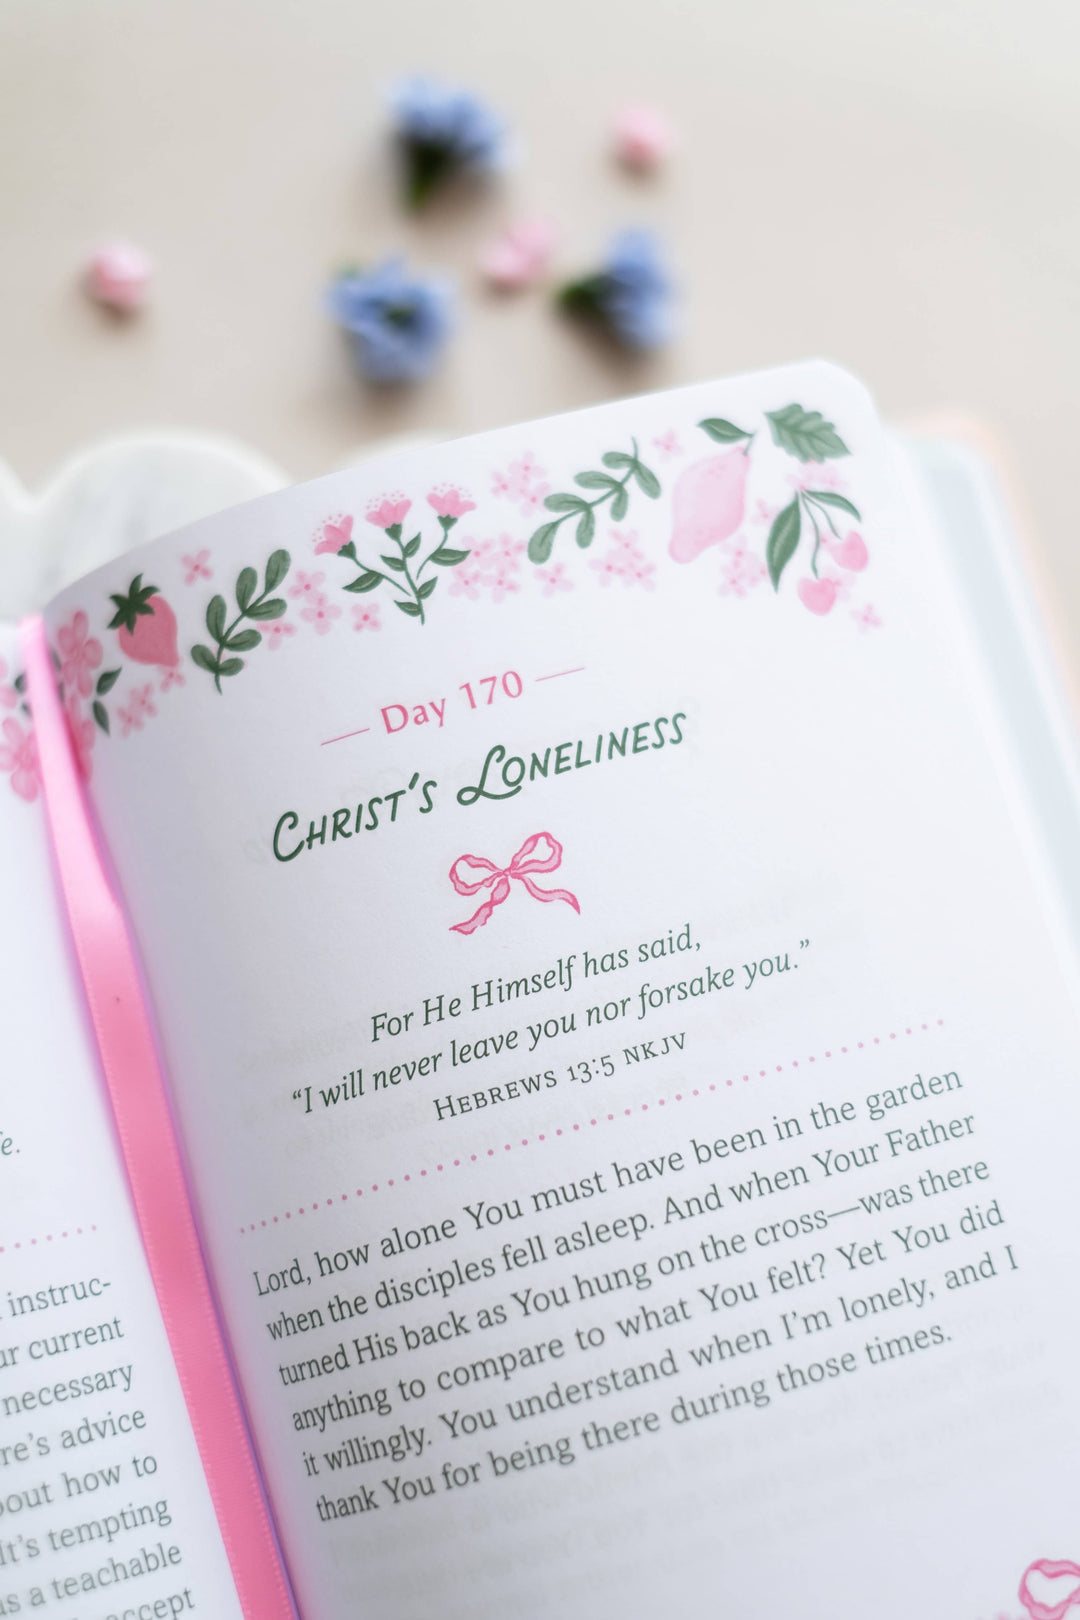 fe.
instruc-
ur current
necessary
re's advice
bout how to
It's tempting
as a teachable
accept
— Day 170 —
CHRIST'S LONELINESS
For He Himself has said,
“I will never leave you nor forsake you.”
HEBREWS 13:5 NKJV
Lord, how alone You must have been in the garden
when the disciples fell asleep. And when Your Father
turned His back as You hung on the cross—was there
anything to compare to what You felt? Yet You did
it willingly. You understand when I’m lonely, and I
thank You for being there during those times.